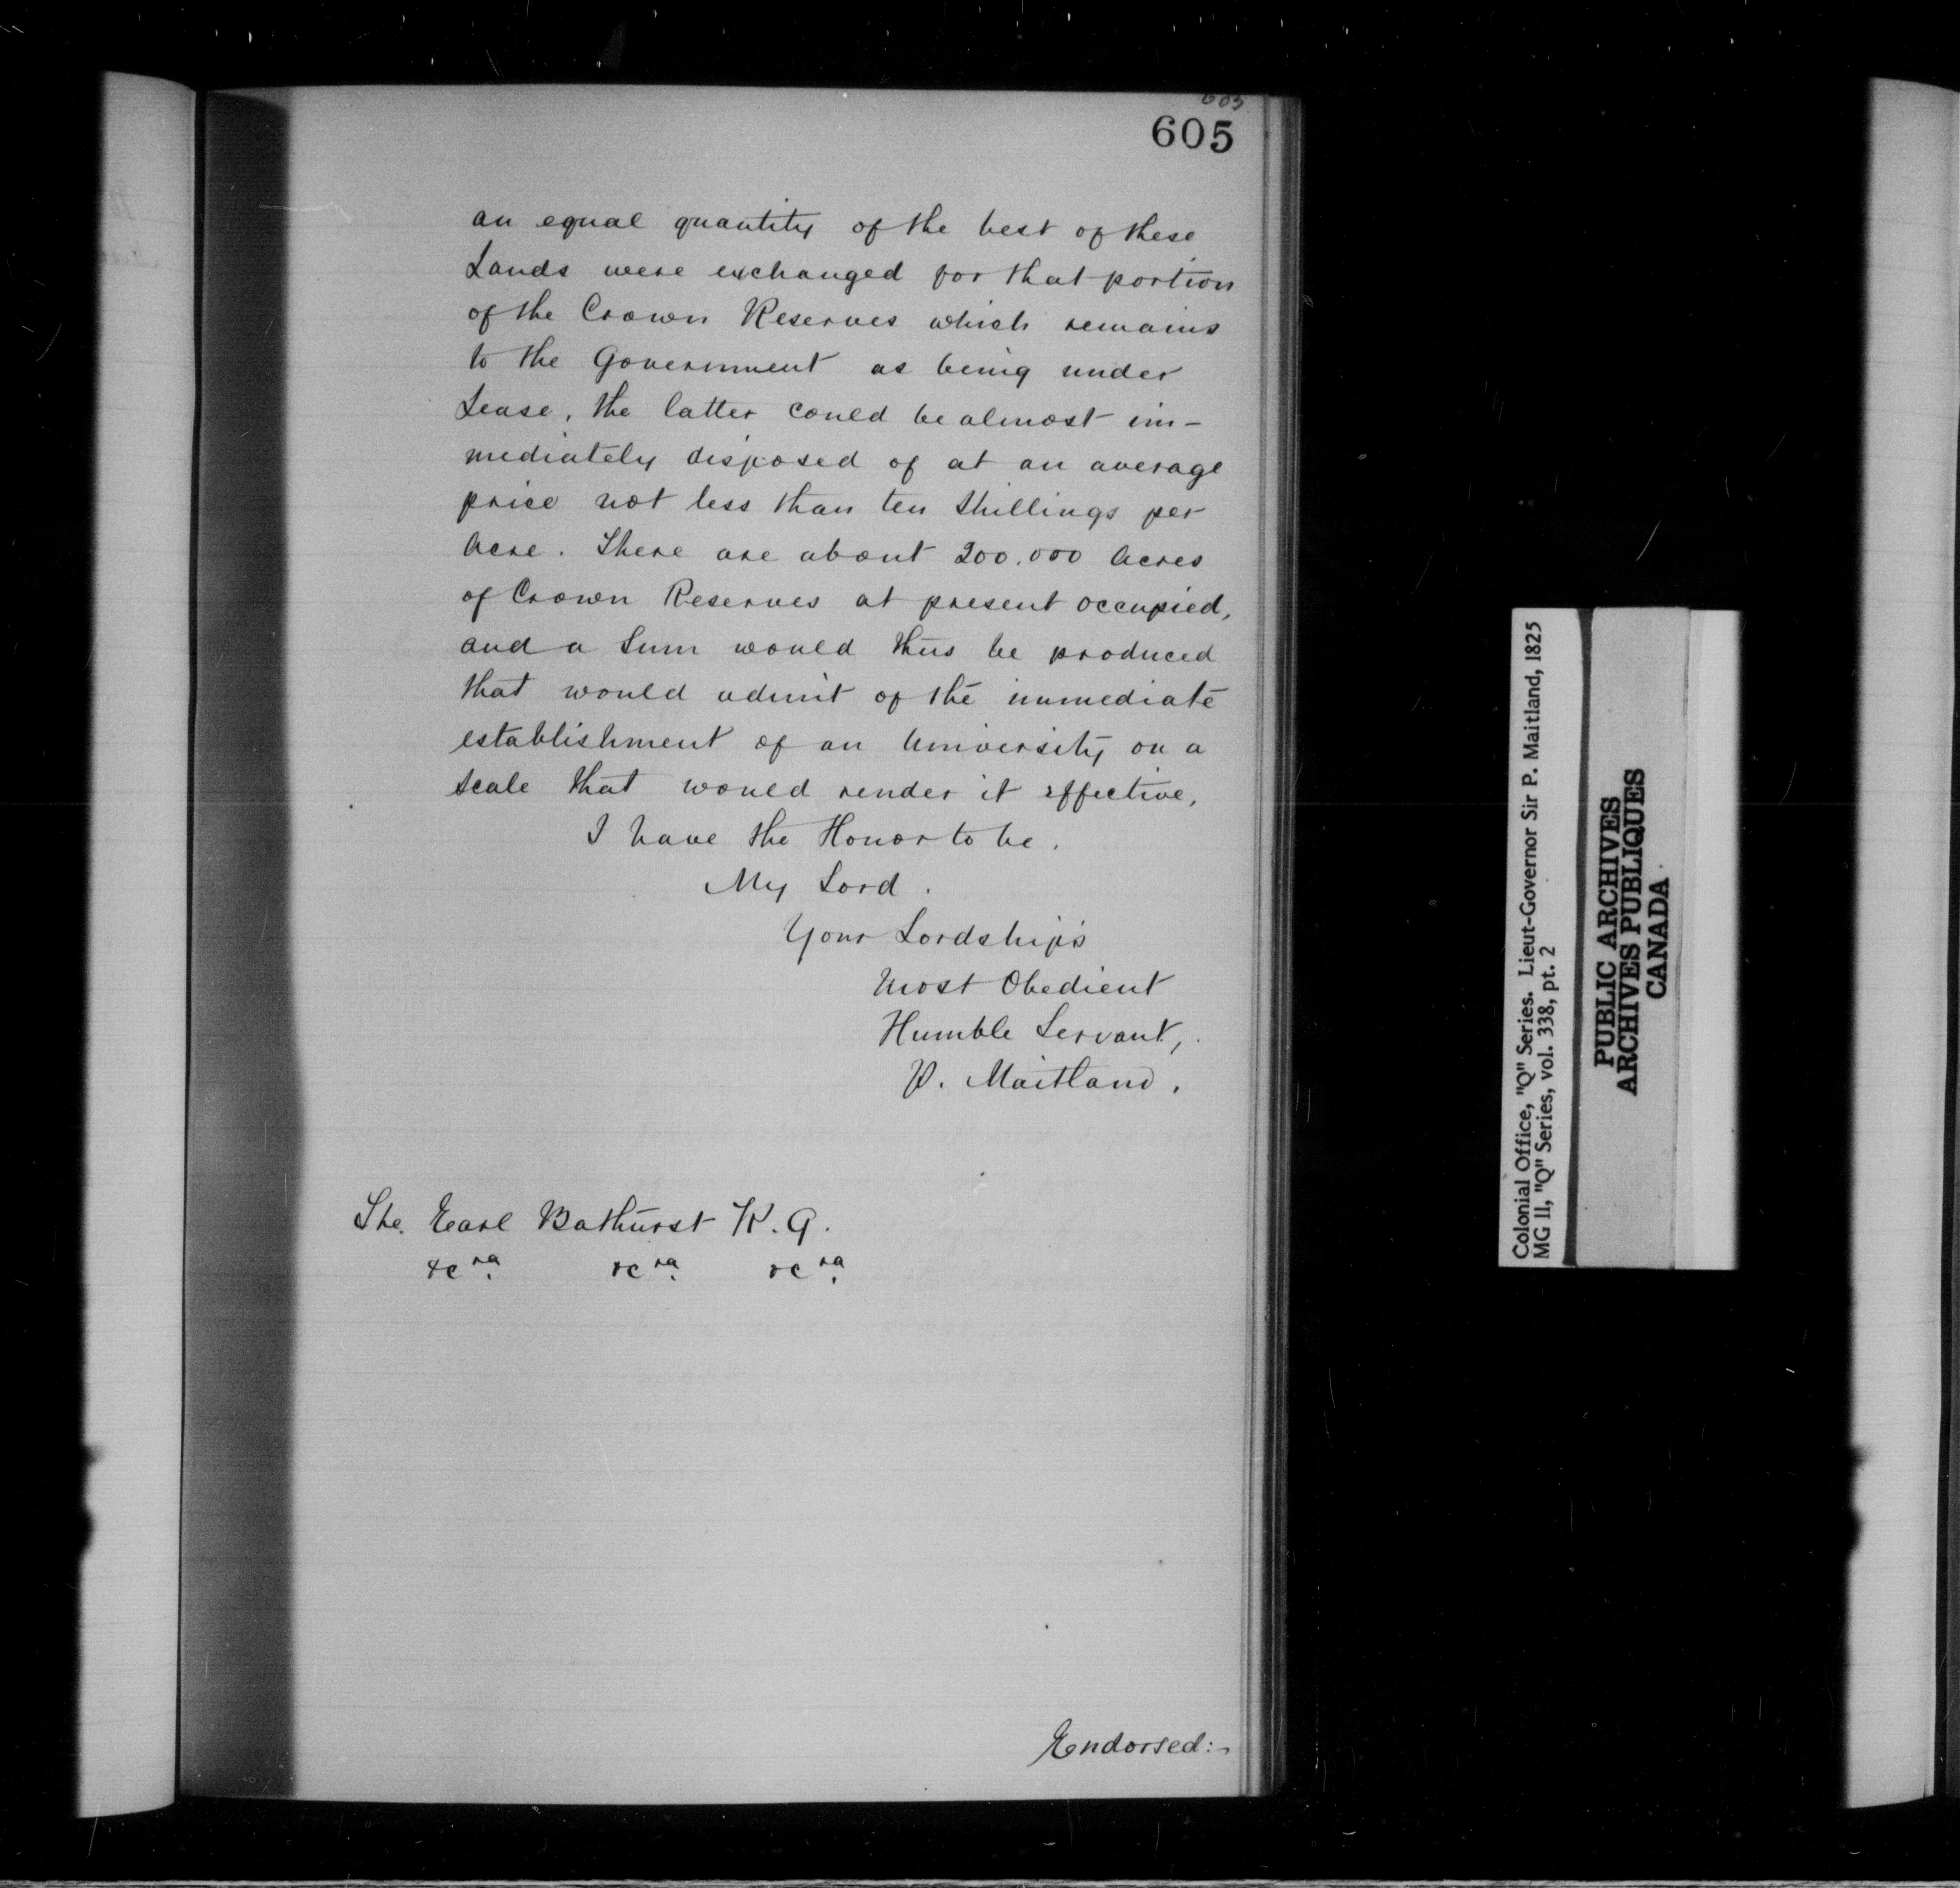 603
605
an equal quantity of the best of these
Lands were exchanged for that portion
of the Crown Reserves which remains
to the Government as being under
Lease, the latter could be almost im-
mediately disposed of at an average
price not less than ten Shillings per
Acre. There are about 200.000 Acres
of Crown Reserves at present occupied,
and a Sum would thus be produced
that would admit of the immediate
establishment of an University on a
Scale that would render it effective,
I have the Honor to be.
My Lord.
Your Lordship's
Most Obedient
Humble Servant,
P. Maitland.
The Earl Bathurst K.G.
&c ra. &c ra. &c ra.
Endorsed:-
Colonial Office, "Q" Series. Lieut-Governor Sir P. Maitland, 1825
MG 11, "Q" Series, vol. 338, pt. 2
PUBLIC ARCHIVES
ARCHIVES PUBLIQUES
CANADA